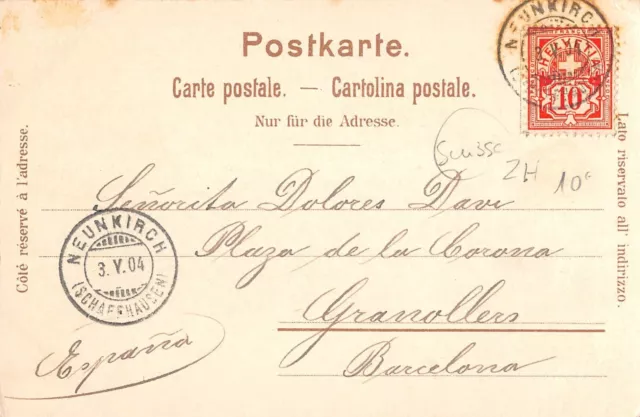 Postkarte.
Carte postale. — Cartolina postale.
Nur für die Adresse.
NEUNKIRCH
HELVETIA
10
Suisse
ZH
10
Côté réservé à l'adresse.
Lato riservato all' indirizzo.
Señorita Dolores Davi
Plaza de la Corona
Granollers
Barcelona
España
NEUNKIRCH
3. V. 04
(SCHAFFHAUSEN)